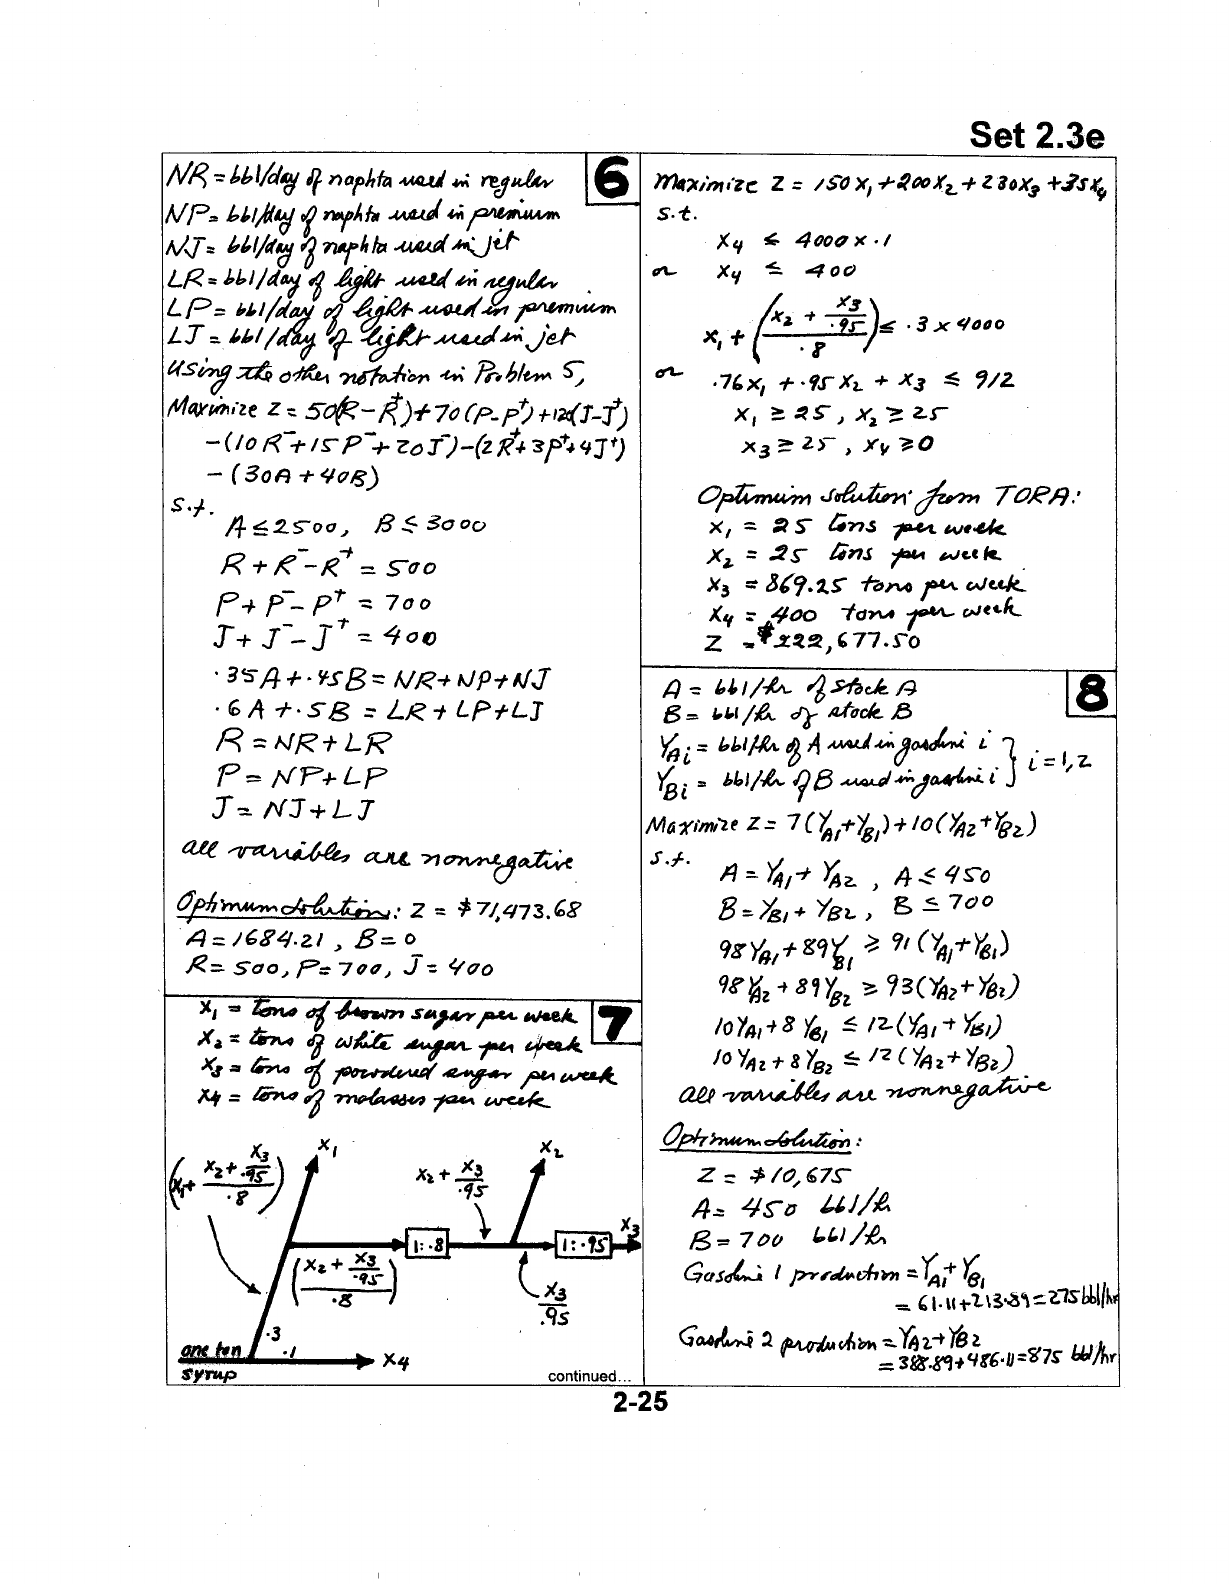 Set 2.3e
6
NR = bbl/day of naphta used in regular
NP = bbl/day of naphta used in premium
NJ = bbl/day of naphta used in jet
LR = bbl/day of light used in regular
LP = bbl/day of light used in premium
LJ = bbl/day of light used in jet
Using the other notation in Problem 5,
Maximize Z = 50(R-R⁺)+70(P-P⁺)+120(J-J⁺)
-(10R⁻+15P⁻+20J⁻)-(2R⁺+3P⁺+4J⁺)
-(30A+40B)
s.t.
A ≤ 2500, B ≤ 3000
R + R⁻ - R⁺ = 500
P + P⁻ - P⁺ = 700
J + J⁻ - J⁺ = 400
.35A + .45B = NR + NP + NJ
.6A + .5B = LR + LP + LJ
R = NR + LR
P = NP + LP
J = NJ + LJ
all variables are nonnegative
Optimum solution: Z = $71,473.68
A = 1684.21, B = 0
R = 500, P = 700, J = 400
7
x₁ = tons of brown sugar per week
x₂ = tons of white sugar per week
x₃ = tons of powdered sugar per week
x₄ = tons of molasses per week
(x₁ + (x₂ + x₃/.95)/.8)
x₁
x₂ + x₃/.95
x₂
1:.8
1:.95
x₃
((x₂ + x₃/.95)/.8)
x₃/.95
.3
.1
one ton
syrup
x₄
continued...
Maximize Z = 150x₁ + 200x₂ + 230x₃ + 35x₄
s.t.
x₄ ≤ 4000 x .1
or x₄ ≤ 400
x₁ + ((x₂ + x₃/.95)/.8) ≤ .3 x 4000
or .76x₁ + .95x₂ + x₃ ≤ 912
x₁ ≥ 25, x₂ ≥ 25
x₃ ≥ 25, x₄ ≥ 0
Optimum solution from TORA:
x₁ = 25 tons per week
x₂ = 25 tons per week
x₃ = 869.25 tons per week
x₄ = 400 tons per week
Z = $222,677.50
8
A = bbl/hr of stock A
B = bbl/hr of stock B
Y_Ai = bbl/hr of A used in gasoline i
Y_Bi = bbl/hr of B used in gasoline i } i = 1,2
Maximize Z = 7(Y_A1+Y_B1)+10(Y_A2+Y_B2)
s.t.
A = Y_A1 + Y_A2, A ≤ 450
B = Y_B1 + Y_B2, B ≤ 700
98Y_A1 + 89Y_B1 ≥ 91(Y_A1+Y_B1)
98Y_A2 + 89Y_B2 ≥ 93(Y_A2+Y_B2)
10Y_A1 + 8Y_B1 ≤ 12(Y_A1+Y_B1)
10Y_A2 + 8Y_B2 ≤ 12(Y_A2+Y_B2)
all variables are nonnegative
Optimum solution:
Z = $10,675
A = 450 bbl/hr
B = 700 bbl/hr
Gasoline 1 production = Y_A1 + Y_B1
= 61.11+213.89=275 bbl/hr
Gasoline 2 production = Y_A2+Y_B2
= 388.89+486.11=875 bbl/hr
2-25